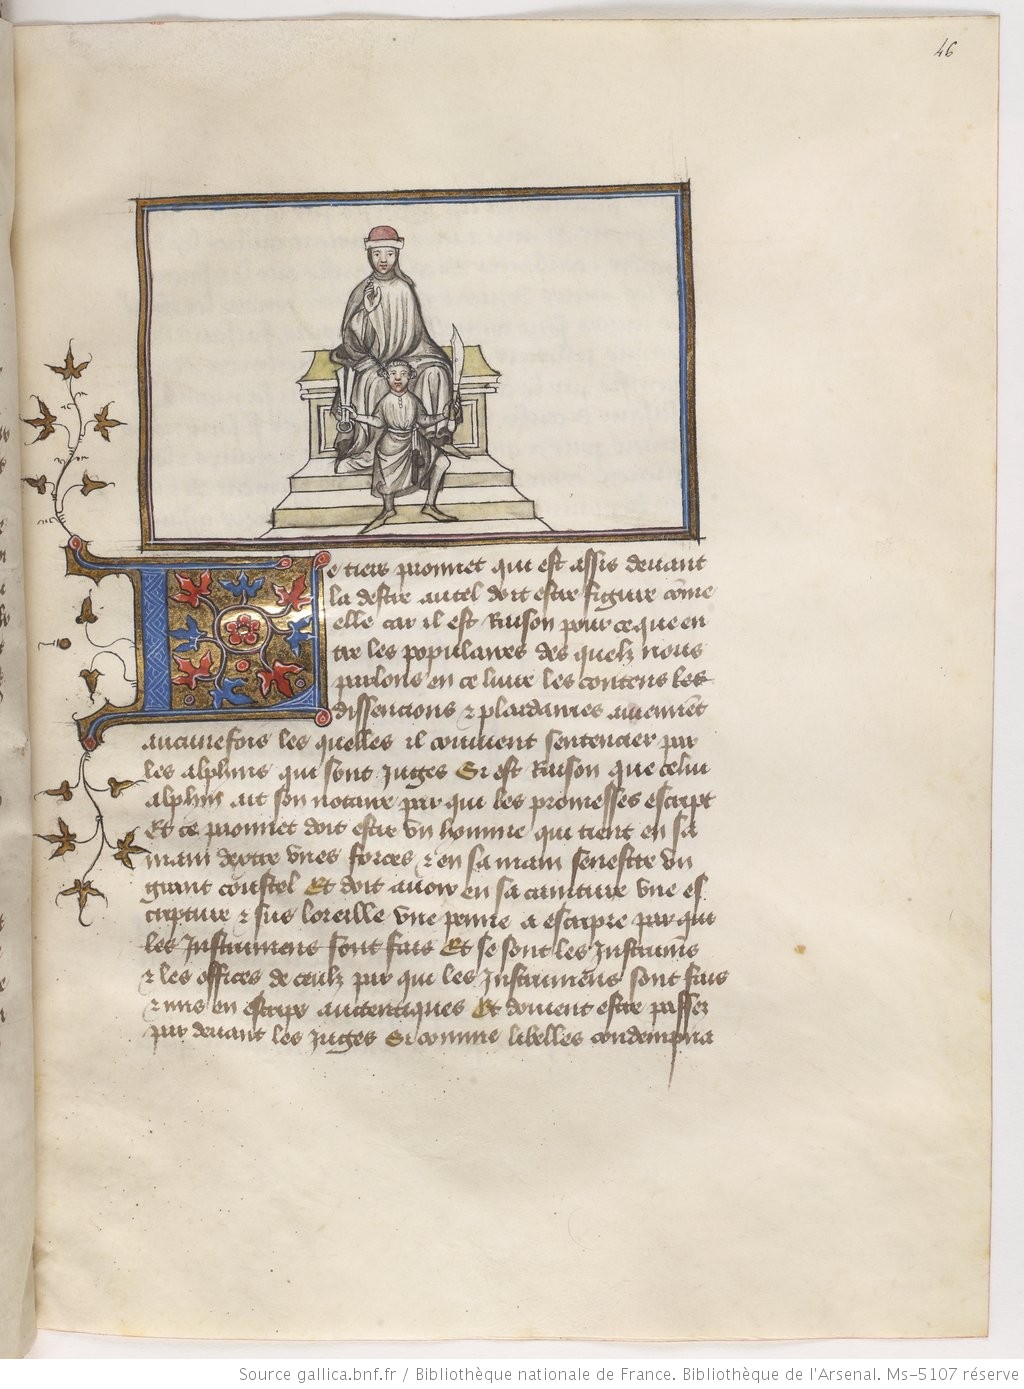 46
Le tiers paonnet qui est assis deuant
la destre autel doit estre figure come
elle car il est Raison pour ce que en
tre les populaires des quelz nous
parlons en ce liure les contens les
dissencions & plaidaries auiennent
aucunefois les quelles il conuient sentencier par
les alphins qui sont Juges Si est Raison que celui
alphin ait son notaire par qui les promesses escript
Et ce paonnet doit estre vn homme qui tient en sa
main dextre vnes forces & en sa main senestre vn
grant coustel Et doit auoir en sa cainture vne es
cripture & sus loreille vne penne a escripre par qui
les Instrumens sont fais Et se sont les Instrums
& les offices de ceulx par qui les Instrumens sont fais
& mis en escript auctentiques Et doiuent estre passez
par deuant les Juges Si comme libelles condempna
Source gallica.bnf.fr / Bibliothèque nationale de France. Bibliothèque de l'Arsenal. Ms-5107 réserve